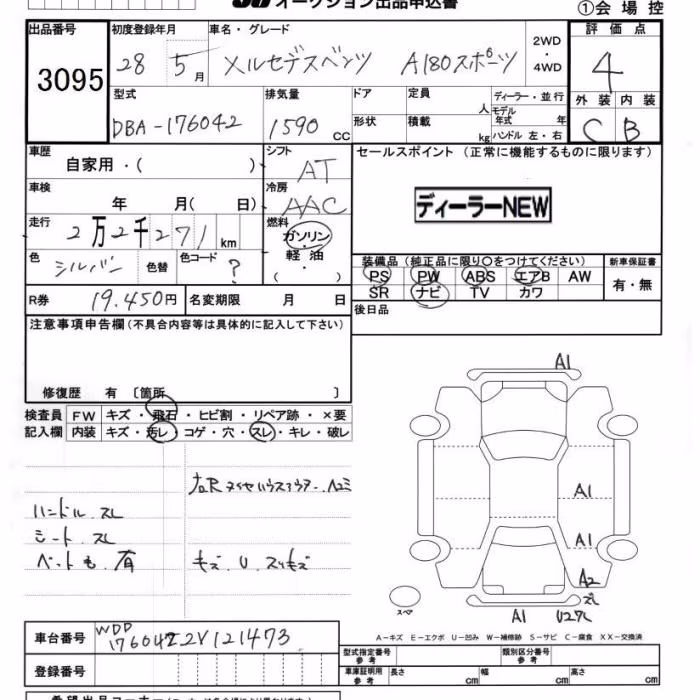 オークション出品申込書
①会場控
出品番号
3095
初度登録年月
28 5月
車名・グレード
メルセデスベンツ A180スポーツ
2WD
・
4WD
評価点
4
外装 内装
C B
型式
DBA-176042
排気量
1590 CC
ドア
形状
定員 人
積載 kg
ディーラー・並行
モデル年式 年
ハンドル 左・右
車歴
自家用・( )
シフト
AT
セールスポイント (正常に機能するものに限ります)
ディーラーNEW
車検
年 月( 日)
冷房
AAC
走行
2万2千271km
燃料
ガソリン
・
軽油
( )
色
シルバー
色替
色コード
?
装備品 (純正品に限り○をつけてください)
PS PW ABS エアB AW
SR ナビ TV カワ
新車保証書
有・無
R券 19.450円
名変期限 月 日
後日品
注意事項申告欄(不具合内容等は具体的に記入して下さい)
修復歴 有 〔箇所 〕
検査員
記入欄
FW キズ・飛石・ヒビ割・リペア跡・×要
内装 キズ・汚レ・コゲ・穴・スレ・キレ・破レ
ハンドル.スレ
シート.スレ
ペットも.有
キズ.U.スリキズ
A1
A1
A1
A2
スレ
A1
U27L
スペア
A-キズ E-エクボ U-凹み W-補修跡 S-サビ C-腐食 XX-交換済
車台番号
WDD
1760422V121473
登録番号
型式指定番号
参考
類別区分番号
参考
車庫証明用
参考
長さ cm
幅 cm
高さ cm